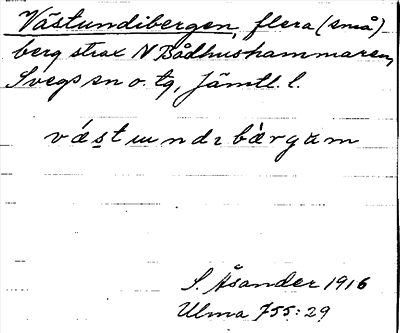 Västundibergen, flera (små)
berg strax N Bådhushammaren,
Svegs sn o. tg, Jämtl. l.
S. Åsander 1916
Ulma 755:29